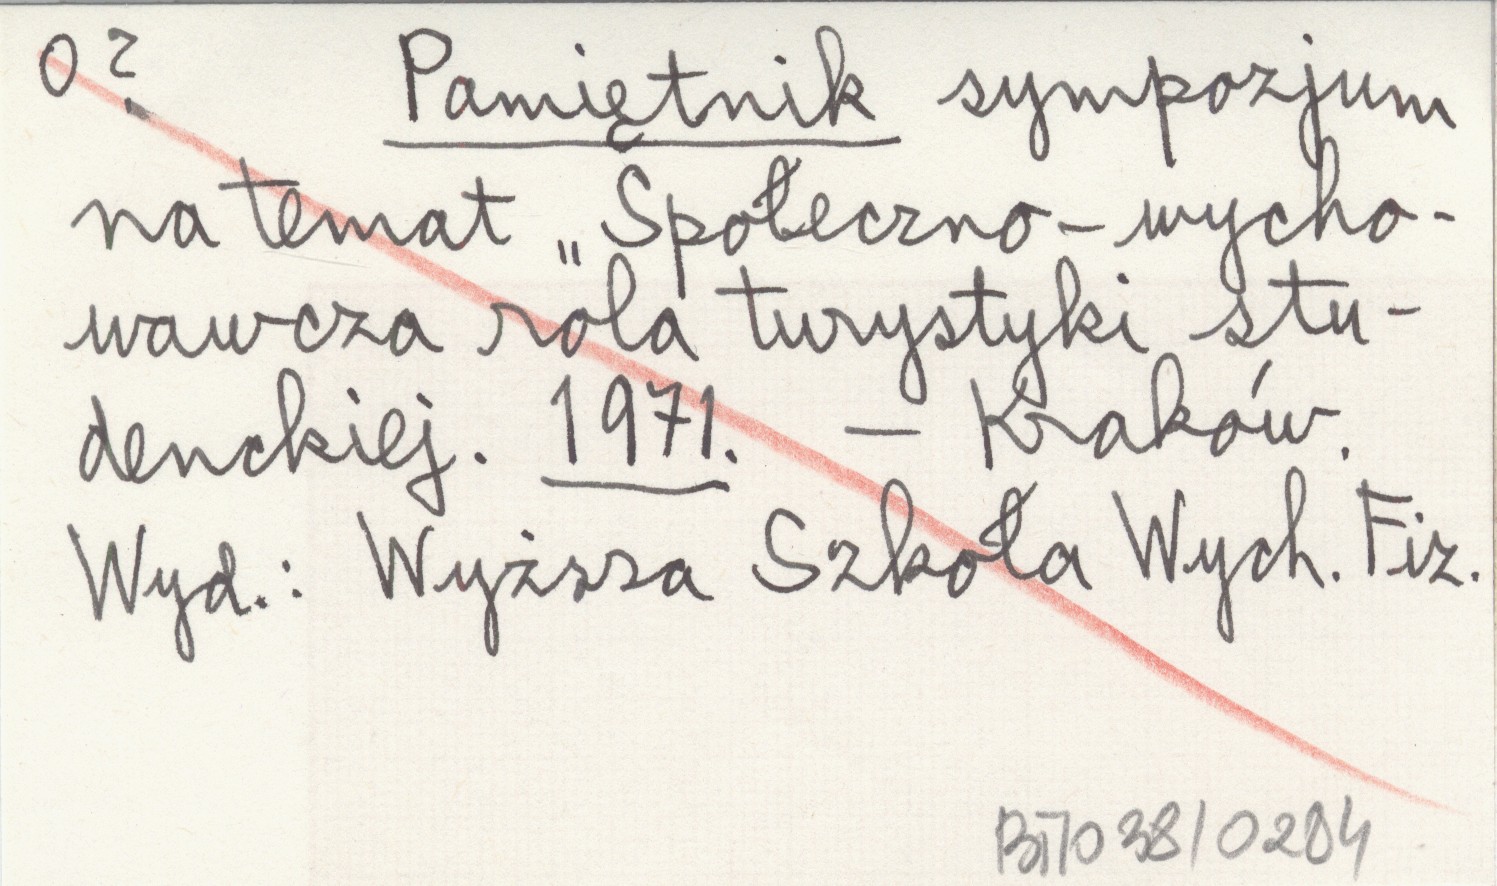 O ? Pamiętnik sympozjum
na temat „Społeczno-wycho-
wawcza rola turystyki stu-
denckiej. 1971. – Kraków.
Wyd.: Wyższa Szkoła Wych. Fiz.
038/0284